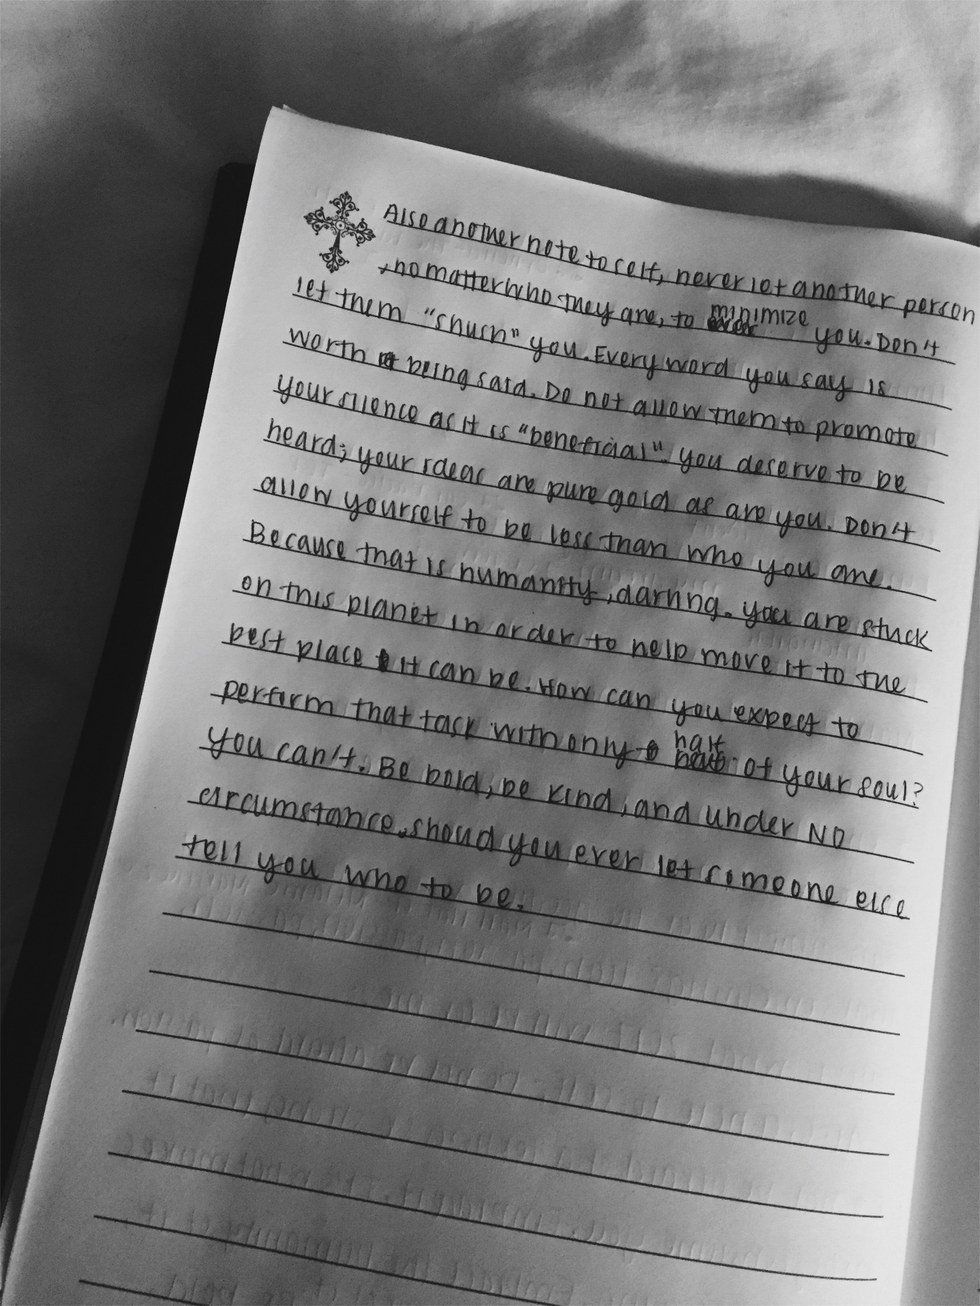 Also another note to self, never let another person
, no matter who they are, to minimize you. Don't
let them "shush" you. Every word you say is
worth being said. Do not allow them to promote
your silence as it is "beneficial". You deserve to be
heard; your ideas are pure gold as are you. Don't
allow yourself to be less than who you are.
Because that is humanity, darling. you are stuck
on this planet in order to help move it to the
best place it can be. How can you expect to
perform that task with only half of your soul?
You can't. Be bold, be kind, and under NO
circumstance, shoud you ever let someone else
tell you who to be.